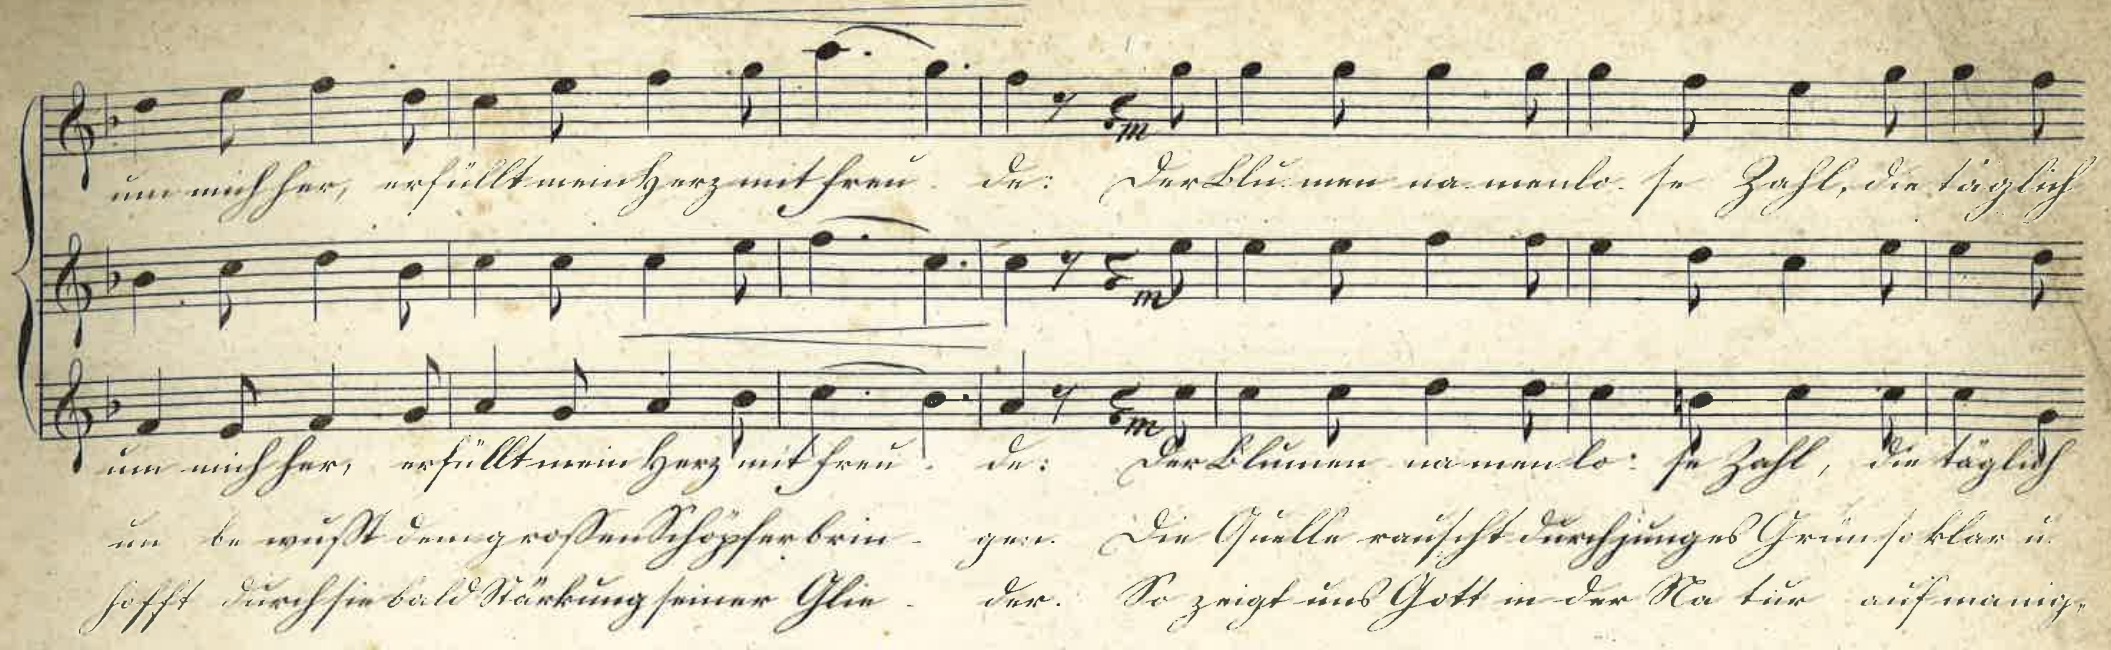 um mich her, erfüllt mein Herz mit Freu - de: Der Blu-men na-menlo-se Zahl, die täglich
um mich her, erfüllt mein Herz mit Freu - de: Der Blumen namenlo-se Zahl, die täglich
un be wußt dem großen Schöpfer brin - gen. Die Quelle rauscht durch junges Grün so klar u.
hofft durch sie bald Stärkung seiner Glie - der. So zeigt uns Gott in der Na tur auf manig-